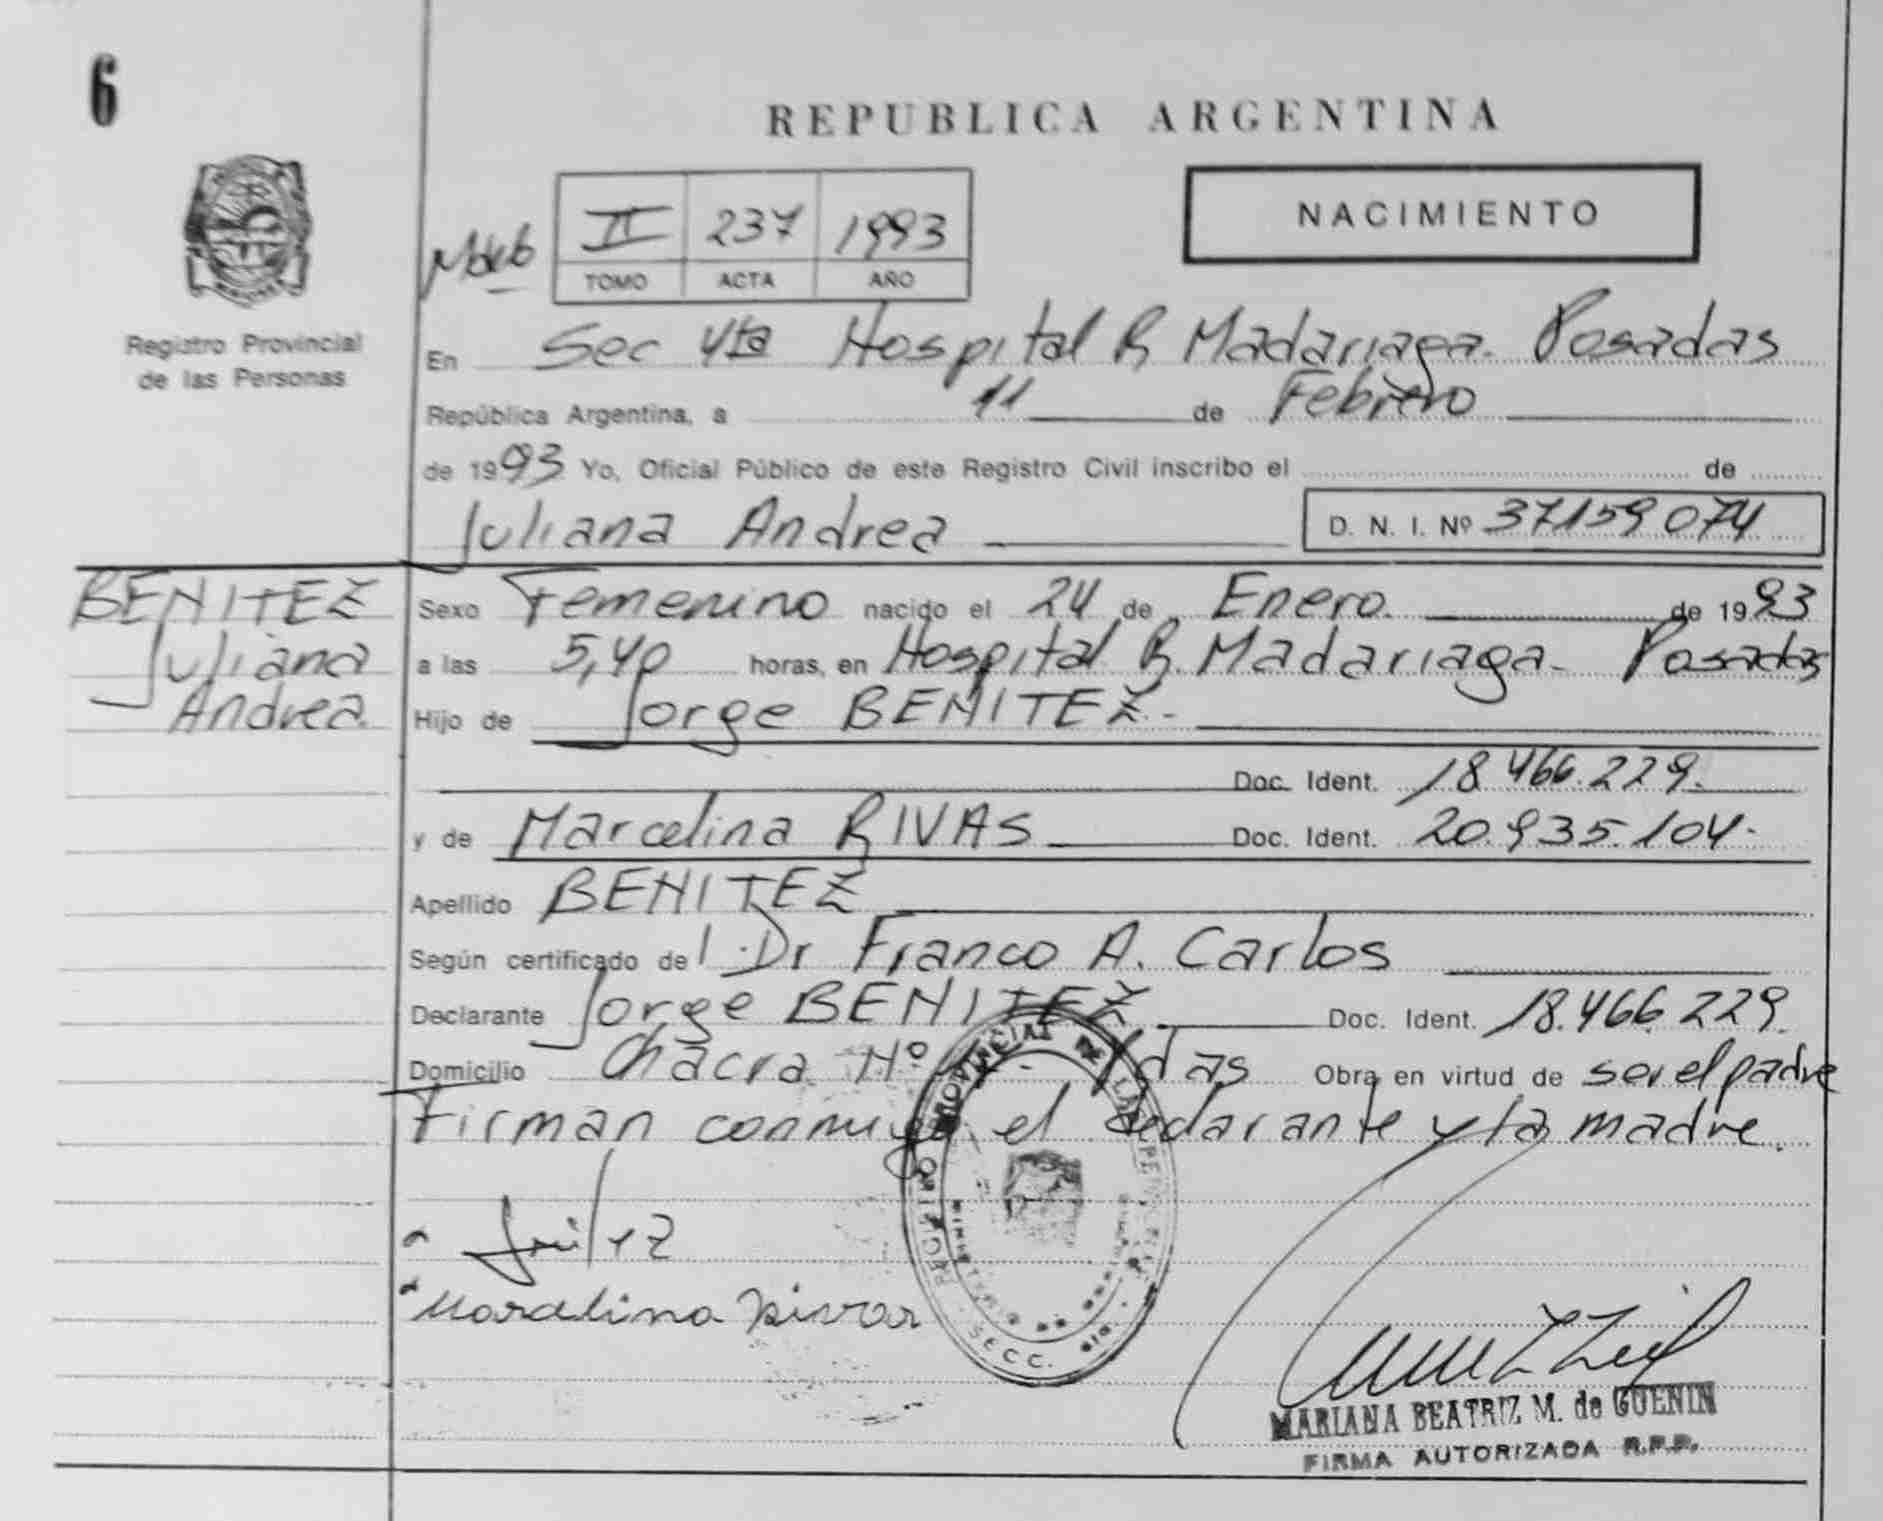 6
REPUBLICA ARGENTINA
NACIMIENTO
II 237 1993
TOMO ACTA AÑO
Registro Provincial
de las Personas
En Sec 4ta Hospital R Madariaga. Posadas
República Argentina, a 11 de Febrero
de 1993 Yo, Oficial Público de este Registro Civil inscribo el de
Juliana Andrea D. N. I. Nº 37159074
BENITEZ
Juliana
Andrea.
Sexo Femenino nacido el 24 de Enero. de 1993
a las 5,40 horas, en Hospital R. Madariaga- Posadas
Hijo de Jorge BENITEZ.-
Doc. Ident. 18.466.229.
y de Marcelina RIVAS Doc. Ident. 20.935.104.
Apellido BENITEZ
Según certificado del Dr Franco A. Carlos
Declarante Jorge BENITEZ Doc. Ident. 18.466.229.
Domicilio Chacra Nº Pdas Obra en virtud de ser el padre
Firman conmigo el declarante y la madre.
Marcelina Rivas
REGISTRO PROVINCIAL DE LAS PERSONAS
SECC.
MARIANA BEATRIZ M. de GUENIN
FIRMA AUTORIZADA R.P.P.